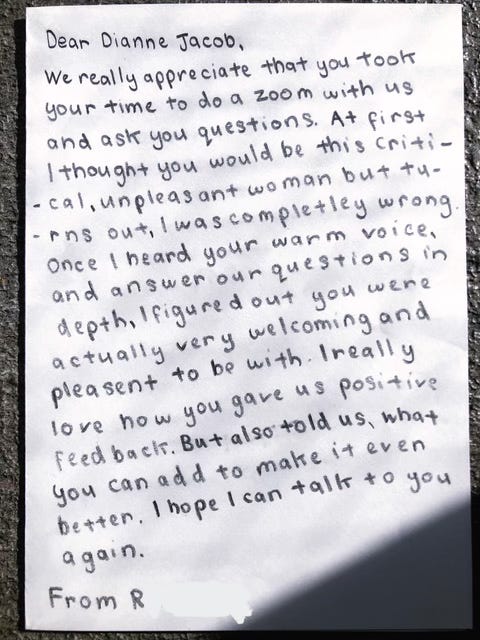 Dear Dianne Jacob,
We really appreciate that you took
your time to do a zoom with us
and ask you questions. At first
I thought you would be this criti-
-cal, unpleasant woman but tu-
-rns out, I was completley wrong.
Once I heard your warm voice,
and answer our questions in
depth, I figured out you were
actually very welcoming and
pleasent to be with. I really
love how you gave us positive
feedback. But also told us, what
you can add to make it even
better. I hope I can talk to you
again.
From R